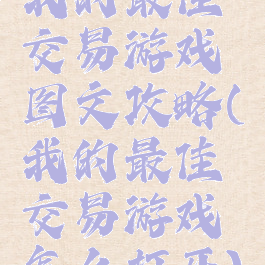 我的最佳
交易游戏
图文攻略(
我的最佳
交易游戏
怎么打开)